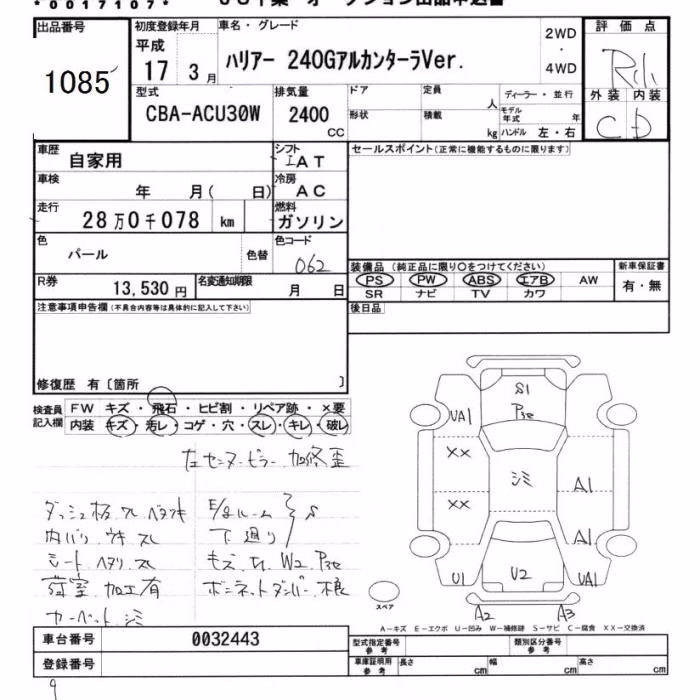 *0017107*
出品番号
1085
初度登録年月
平成
17 3月
車名・グレード
ハリアー 240GアルカンターラVer.
2WD
・
4WD
評価点
外装 内装
C D
型式
CBA-ACU30W
排気量
2400
CC
ドア
定員
人
ディーラー・並行
形状
積載
kg
モデル年式
年
ハンドル 左・右
車歴
自家用
シフト
IAT
セールスポイント(正常に機能するものに限ります)
車検
年 月( 日)
冷房
AC
走行
28万0千078 km
燃料
ガソリン
色
パール
色替
色コード
062
装備品(純正品に限り○をつけてください)
PS PW ABS エアB AW
SR ナビ TV カワ
新車保証書
有・無
R券
13,530円
名変通知期限
月 日
後日品
注意事項申告欄(不具合内容等は具体的に記入して下さい)
修復歴 有〔箇所 〕
検査員
記入欄
FW キズ・飛石・ヒビ割・リペア跡・×要
内装 キズ・汚レ・コゲ・穴・スレ・キレ・破レ
左センターピラー 加修歪
内バリ ウキ スレ
シート ヘタリ スレ
荷室 加工有
カーペット シミ
下廻り
S
S1
UA1
XX
XX
シミ
A1
A1
U1
U2
UA1
A2
A3
スペア
A-キズ E-エクボ U-凹み W-補修跡 S-サビ C-腐食 XX-交換済
車台番号
0032443
登録番号
型式指定番号
参考
類別区分番号
参考
車庫証明用
参考
長さ
cm
幅
cm
高さ
cm